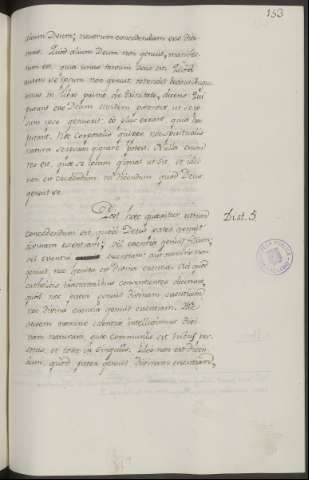 153
alium Deum; neutrum concedendum esse dice
mus. Quod alium Deum non genuit, manifes-
tum est quia unus tantum Deus est. Quod
autem se ipsum non genuit ostendit Augusti-
nus in libro primo de Trinitate, dicens: Qui
putant eius Deum potentia, ut se ip
sum ipse genuerit, eo plus errant quia
non
putant. Nec corporalis natura
natura seipsam gignere potest. Nulla enim
res est, quae se ipsam gignat ut sit, et ideo
non est credendum vel dicendum quod Deus
genuit se.
Post haec quaeritur, utrum
Dist. 5.
concedendum sit, quod Deus pater genuit
divinam essentiam; vel essentia genuit filium;
vel essentia essentiam; aut omnino non
genuit, nec genita est divina essentia. Ad quod
catholicis tractatoribus consentientes dicimus,
quod nec pater genuit divinam essentiam
nec divina essentia genuit essentiam. Hic
autem nomine essentiae intelligimus divi-
nam naturam, quae communis est tribus per
sonis, et tota in singulis. Ideo non est dicen-
dum, quod pater genuit divinam essentiam,